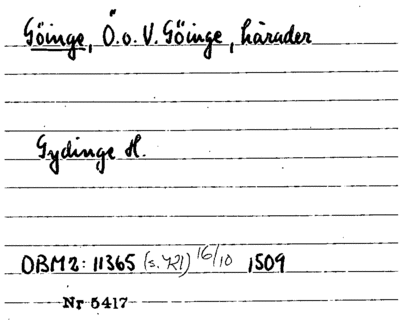 Göinge, Ö. o. V. Göinge, härader
Gydinge H.
DBM 2: 11365 (s. 421) 16/10 1509
Nr 5417